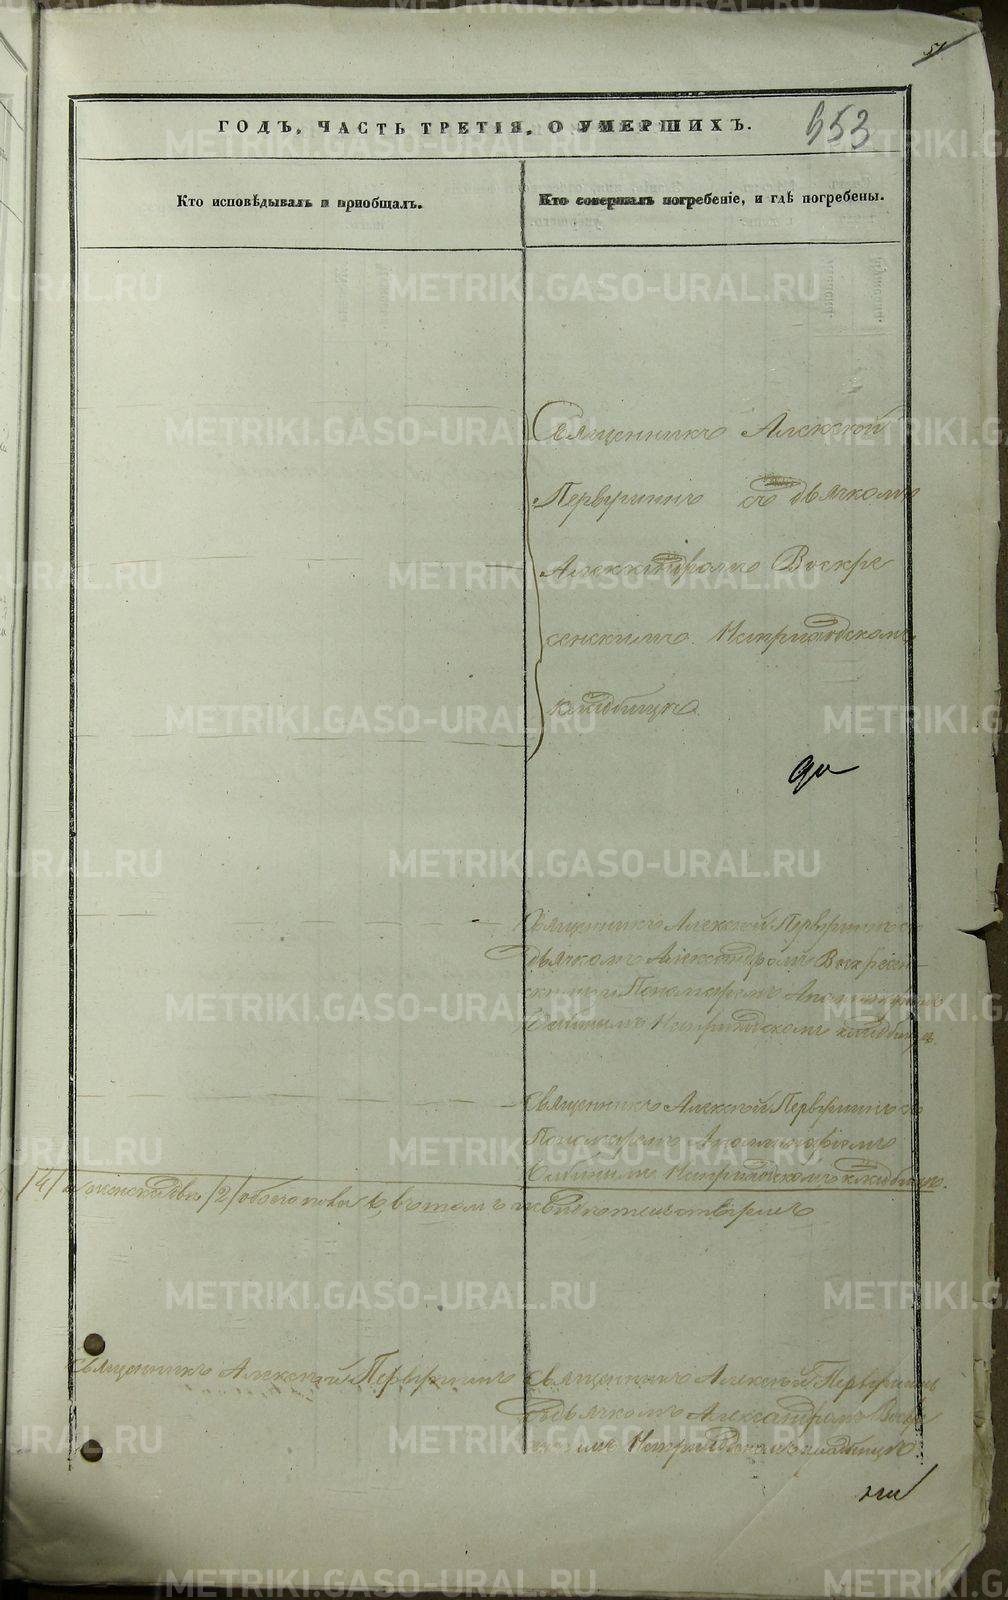 51
ГОДЪ, ЧАСТЬ ТРЕТІЯ, О УМЕРШИХЪ.
553
Кто исповѣдывалъ и пріобщалъ.
Кто совершалъ погребеніе, и гдѣ погребены.
Священникъ Алексѣй
Первушинъ съ дьячкомъ
Александромъ Воскре
сенскимъ На приходскомъ
кладбищѣ
Священникъ Алексѣй Первушинъ съ
дьячкомъ Александромъ Воскресен-
скимъ и Пономаремъ
На приходскомъ кладбищѣ.
Священникъ Алексѣй Первушинъ съ
Пономаремъ
На приходскомъ кладбищѣ.
/4/ а женска два /2/ обоего пола 6, въ томъ
Священникъ Алексѣй Первушинъ
Священникъ Алексѣй Первушинъ
съ дьячкомъ Александромъ Воскре
сенскимъ На приходскомъ кладбищѣ
METRIKI.GASO-URAL.RU